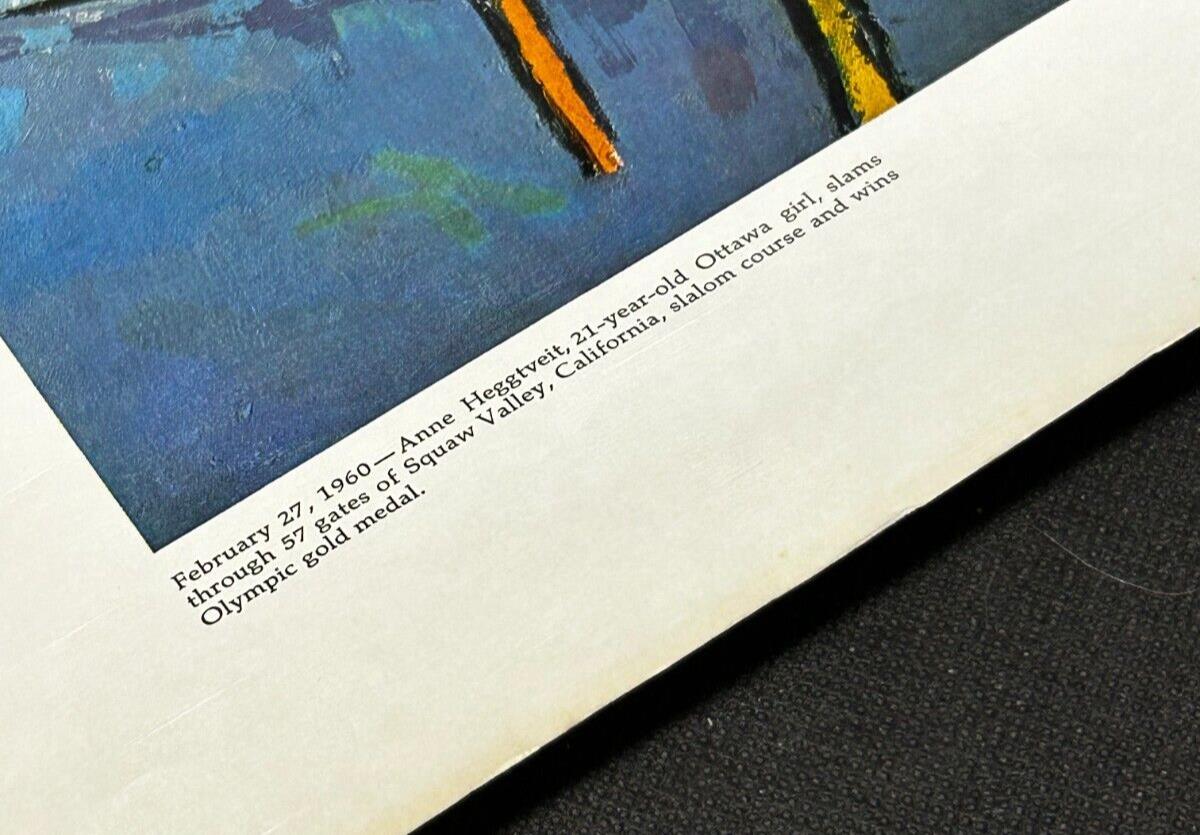 February 27, 1960—Anne Heggtveit, 21-year-old Ottawa girl, slams
through 57 gates of Squaw Valley, California, slalom course and wins
Olympic gold medal.